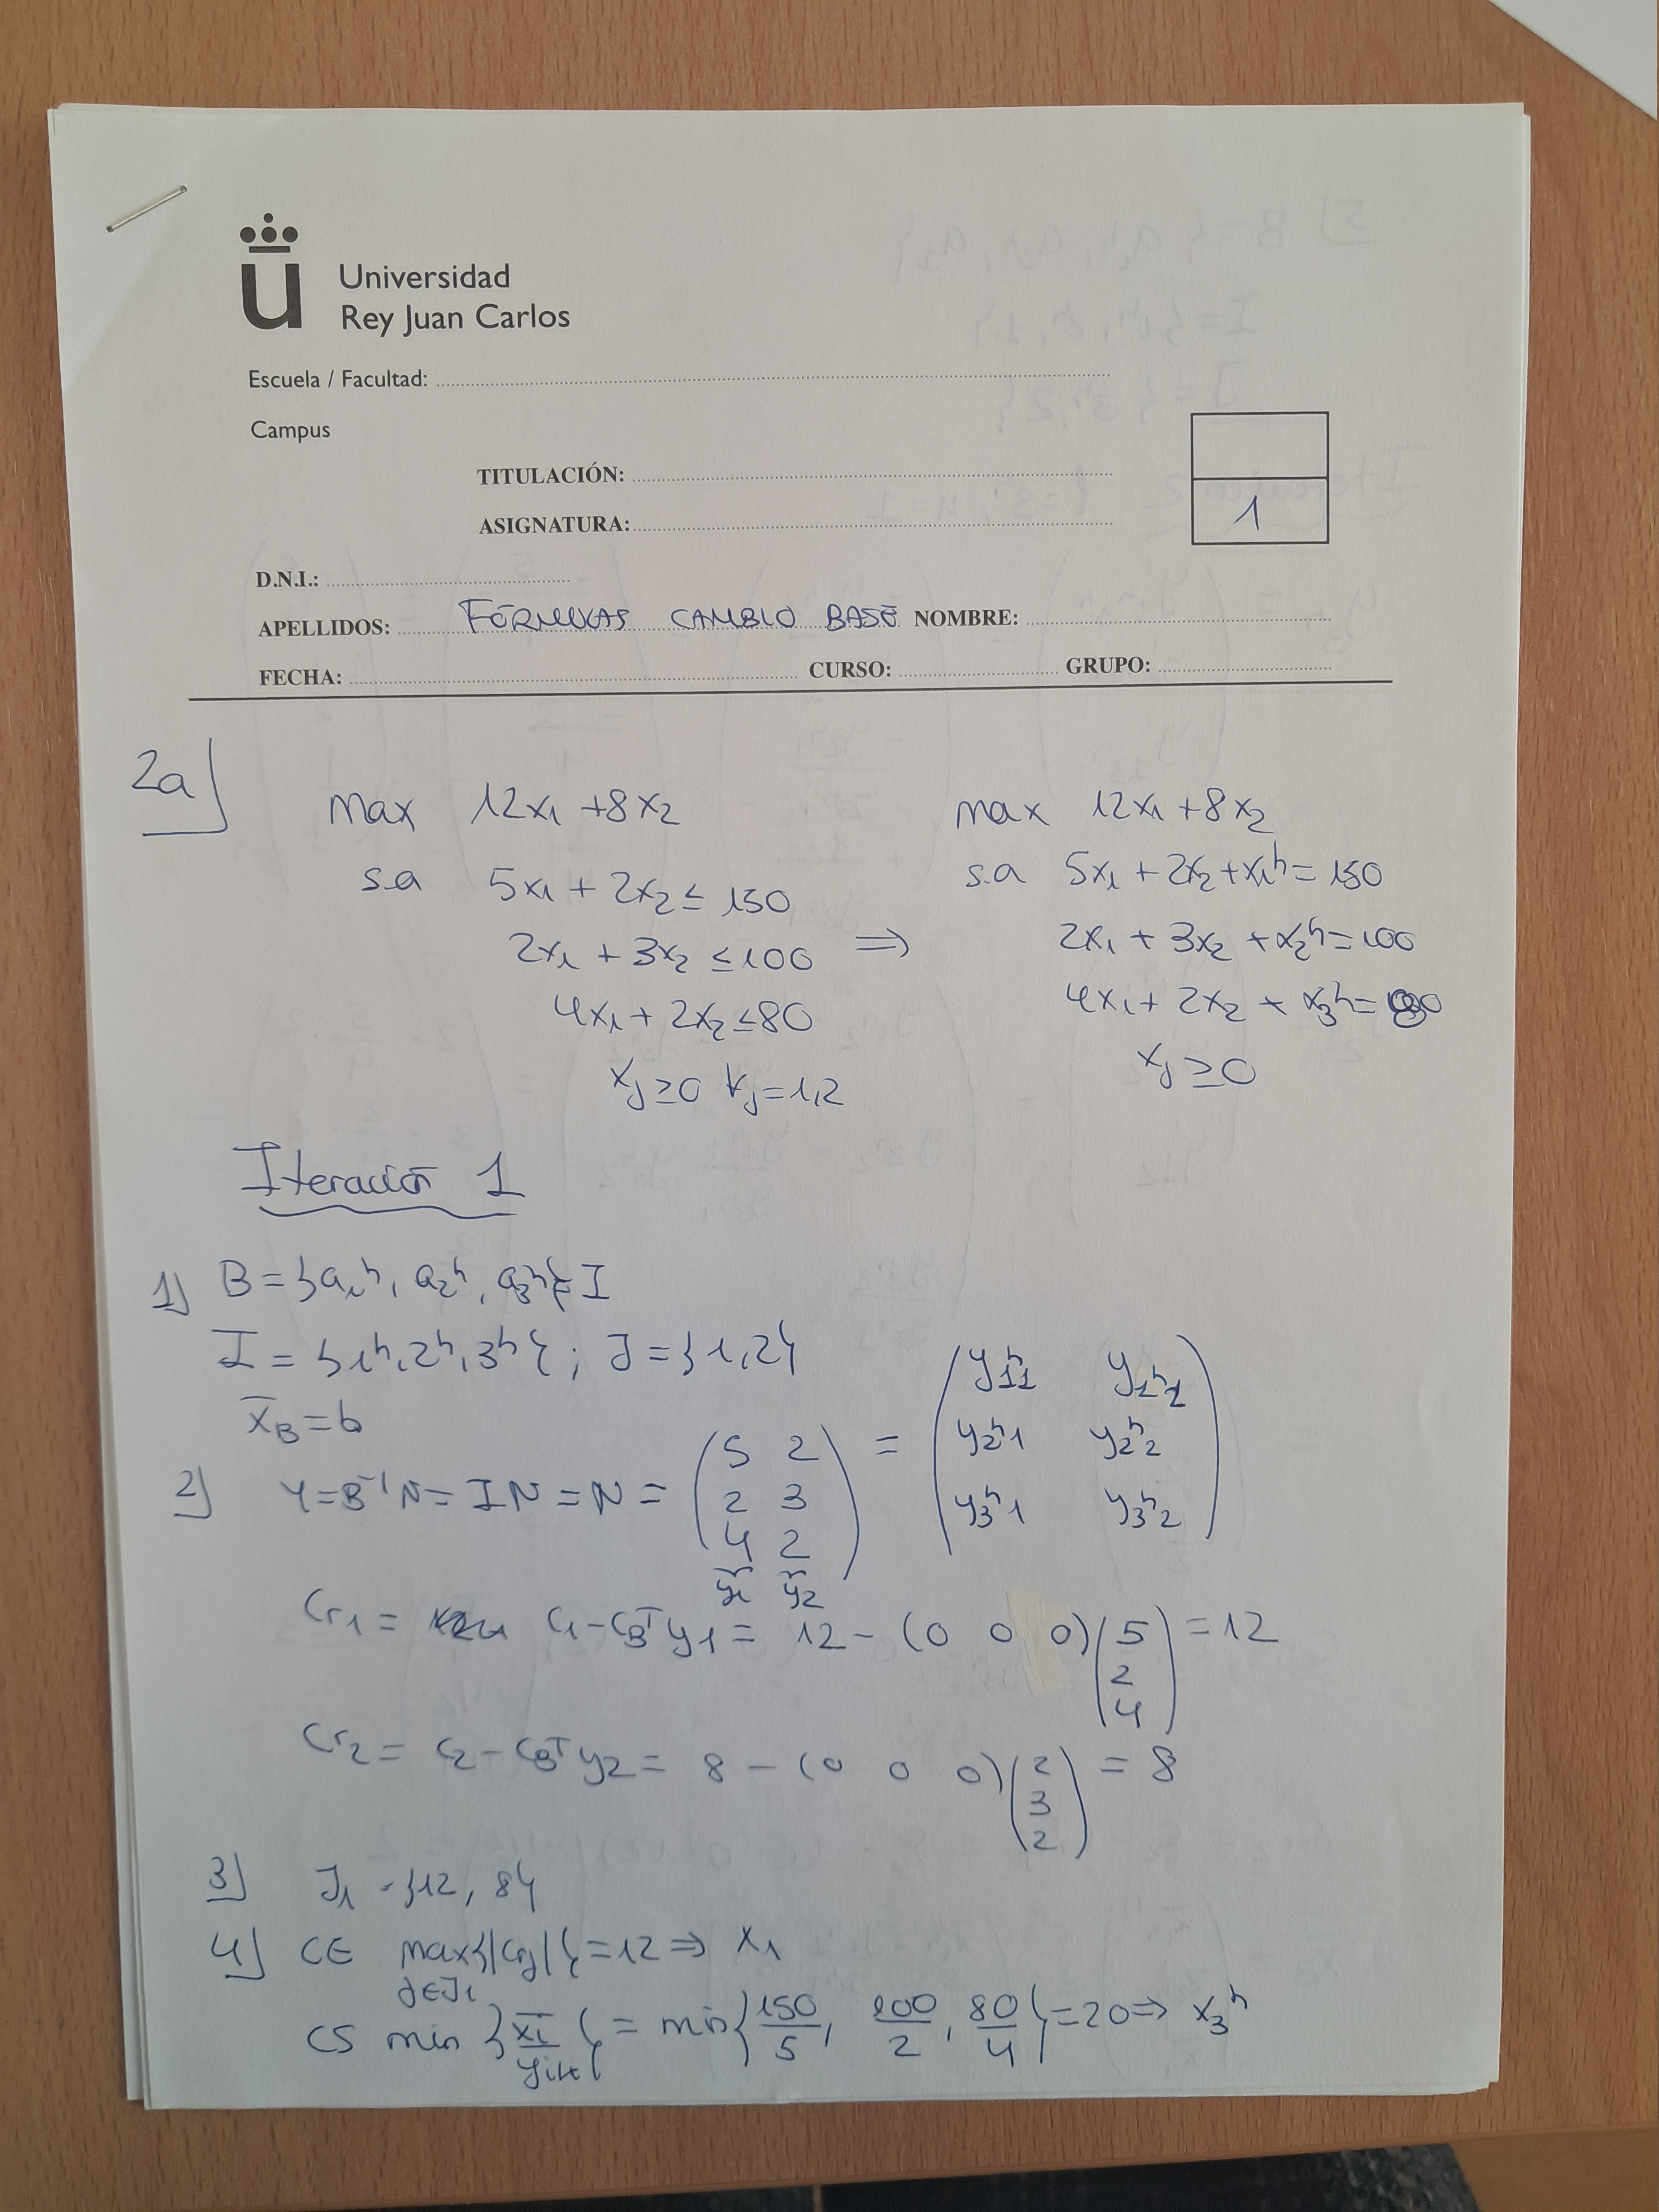 Universidad
Rey Juan Carlos
Escuela / Facultad:
Campus
TITULACIÓN:
ASIGNATURA:
1
D.N.I.:
APELLIDOS: FÓRMULAS CAMBIO BASE NOMBRE:
FECHA: CURSO: GRUPO:
2a
max 12x1 + 8x2 max 12x1 + 8x2
s.a 5x1 + 2x2 ≤ 150 s.a 5x1 + 2x2 + x1h = 150
2x1 + 3x2 ≤ 100 ⇒ 2x1 + 3x2 + x2h = 100
4x1 + 2x2 ≤ 80 4x1 + 2x2 + x3h = 80
xj ≥ 0 ∀j = 1,2 xj ≥ 0
Iteració 1
1) B = {a1h, a2h, a3h} = I
I = {1h, 2h, 3h}; J = {1,2}
x̄B = b
2) Y = B⁻¹N = IN = N = (5 2 / 2 3 / 4 2) = (y1h1 y1h2 / y2h1 y2h2 / y3h1 y3h2)
y1 y2
Cr1 = C1 - CBᵀy1 = 12 - (0 0 0)(5 / 2 / 4) = 12
Cr2 = C2 - CBᵀy2 = 8 - (0 0 0)(2 / 3 / 2) = 8
3) J1 = {12, 8}
4) CE max{|crj|} = 12 ⇒ x1
j∈J1
CS min {x̄i/yik} = min{150/5, 100/2, 80/4} = 20 ⇒ x3h